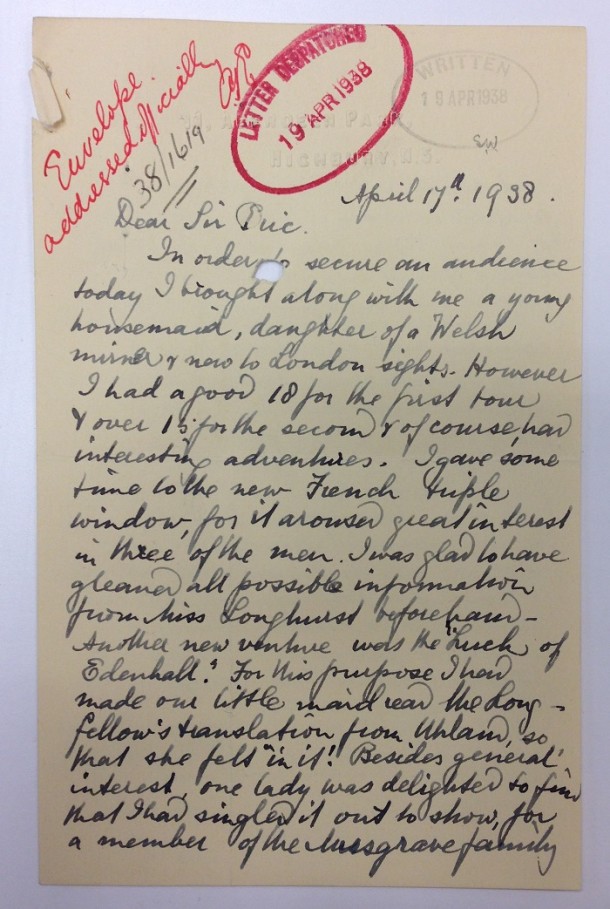 Envelope
addressed officially
38/1619
LETTER DESPATCHED
19 APR 1938
WRITTEN
19 APR 1938
HIGHBURY, N.5.
April 17th. 1938.
Dear Sir Eric.
In order to secure an audience
today I brought along with me a young
housemaid, daughter of a Welsh
miner & new to London sights. However
I had a good 18 for the first tour
& over 15 for the second & of course, had
interesting adventures. I gave some
time to the new French triple
window, for it aroused great interest
in three of the men. I was glad to have
gleaned all possible information
from Miss Longhurst beforehand -
Another new venture was the "Luck of
Edenhall". For this purpose I had
made our little maid read the Long-
fellow's translation from Uhland, so
that she felt "in it"! Besides general
interest, one lady was delighted to find
that I had singled it out to show, for
a member of the Musgrave family